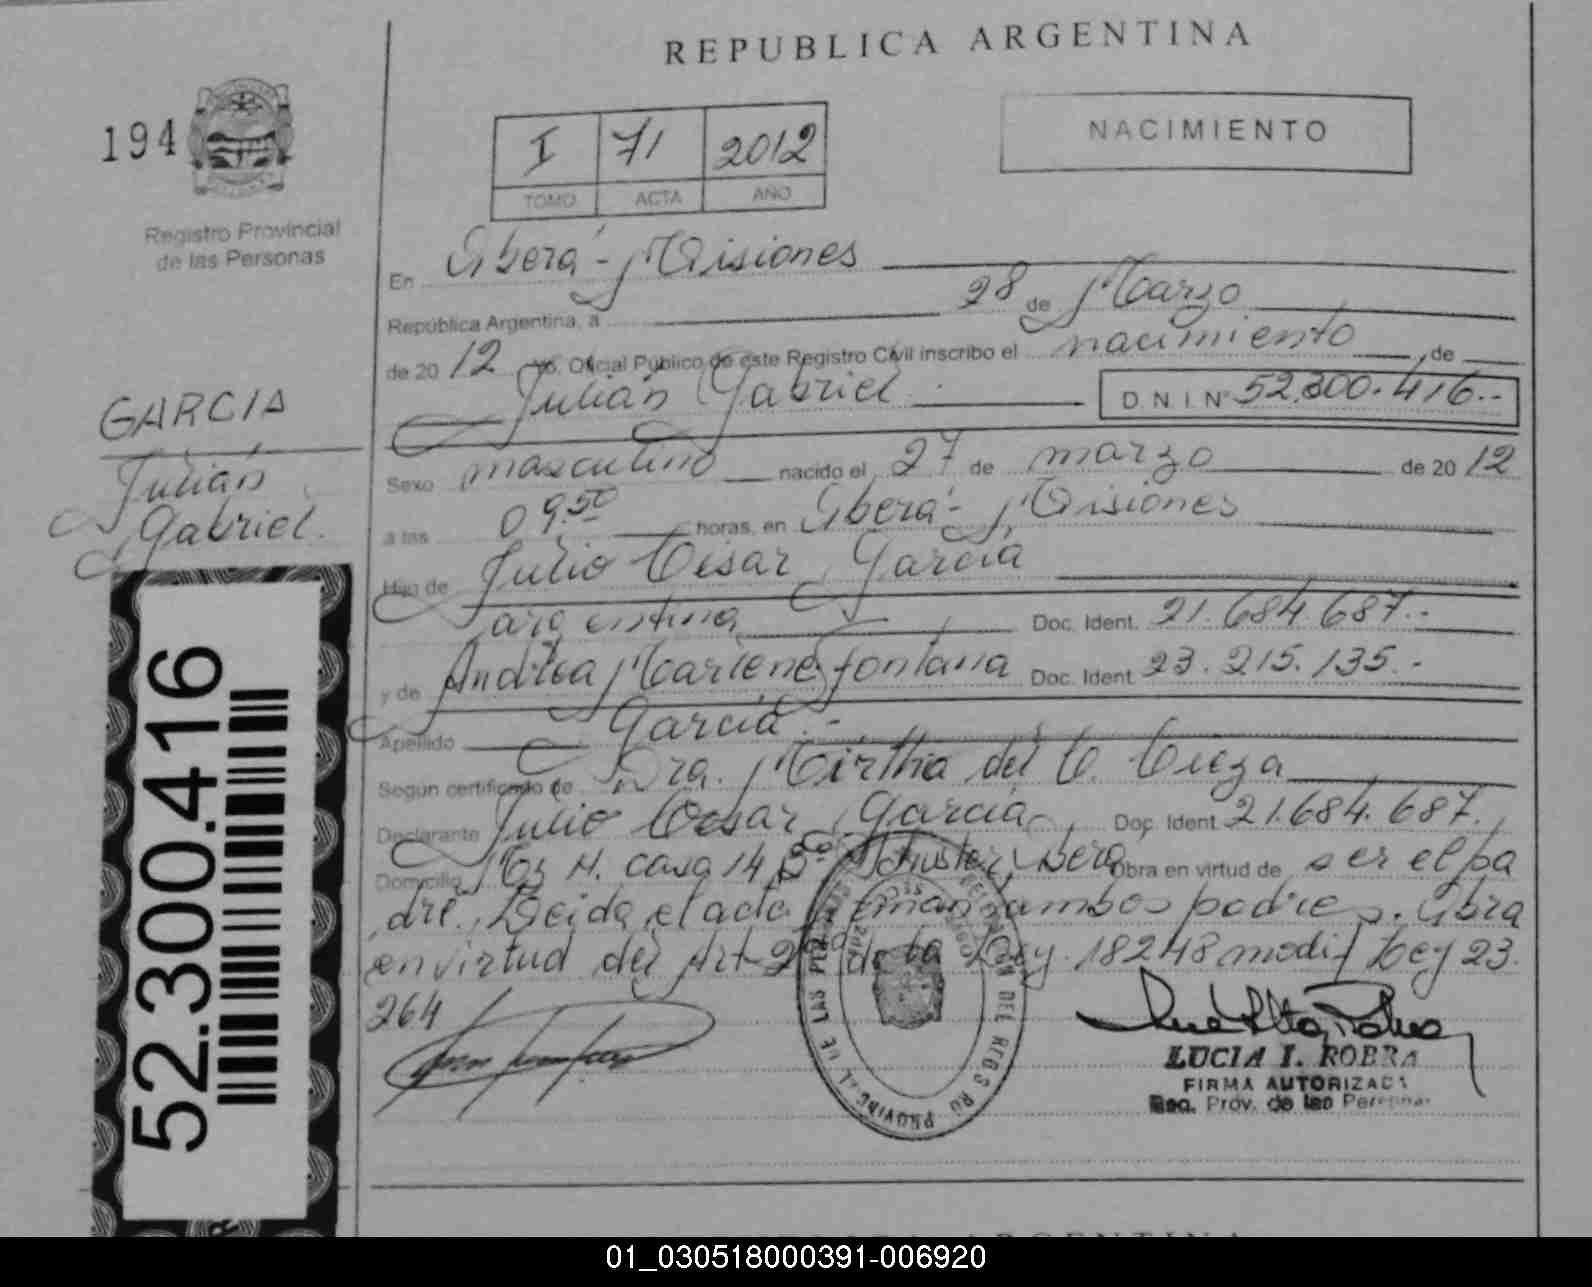 REPUBLICA ARGENTINA
194
I 71 2012
TOMO ACTA AÑO
NACIMIENTO
Registro Provincial
de las Personas
En Oberá - Misiones
República Argentina, a 28 de Marzo
de 2012 yo, Oficial Público de este Registro Civil inscribo el nacimiento, de
Julián Gabriel. D.N.I. Nº 52.300.416.-
GARCIA
Julián
Gabriel.
Sexo masculino nacido el 27 de marzo de 2012
a las 09.50 horas, en Oberá - Misiones
Hijo de Julio César García
argentina Doc. Ident. 21.684.687.-
y de Andrea Marlene Fontana Doc. Ident. 23.215.135.-
Apellido García.-
Según certificado de Dra. Mirtha del C. Cieza
Declarante Julio César García, Doc. Ident. 21.684.687.
Domicilio Mz H. casa 14 Bº Schuster, Oberá Obra en virtud de ser el pa
dre. Leida el acta firman ambos padres. Obra
en virtud del Art 2º de la Ley 18248 modif Ley 23.
264
52.300.416
REGISTRO PROVINCIAL DE LAS PERSONAS
LUCIA I. ROBRA
FIRMA AUTORIZADA
Reg. Prov. de las Personas
01_030518000391-006920